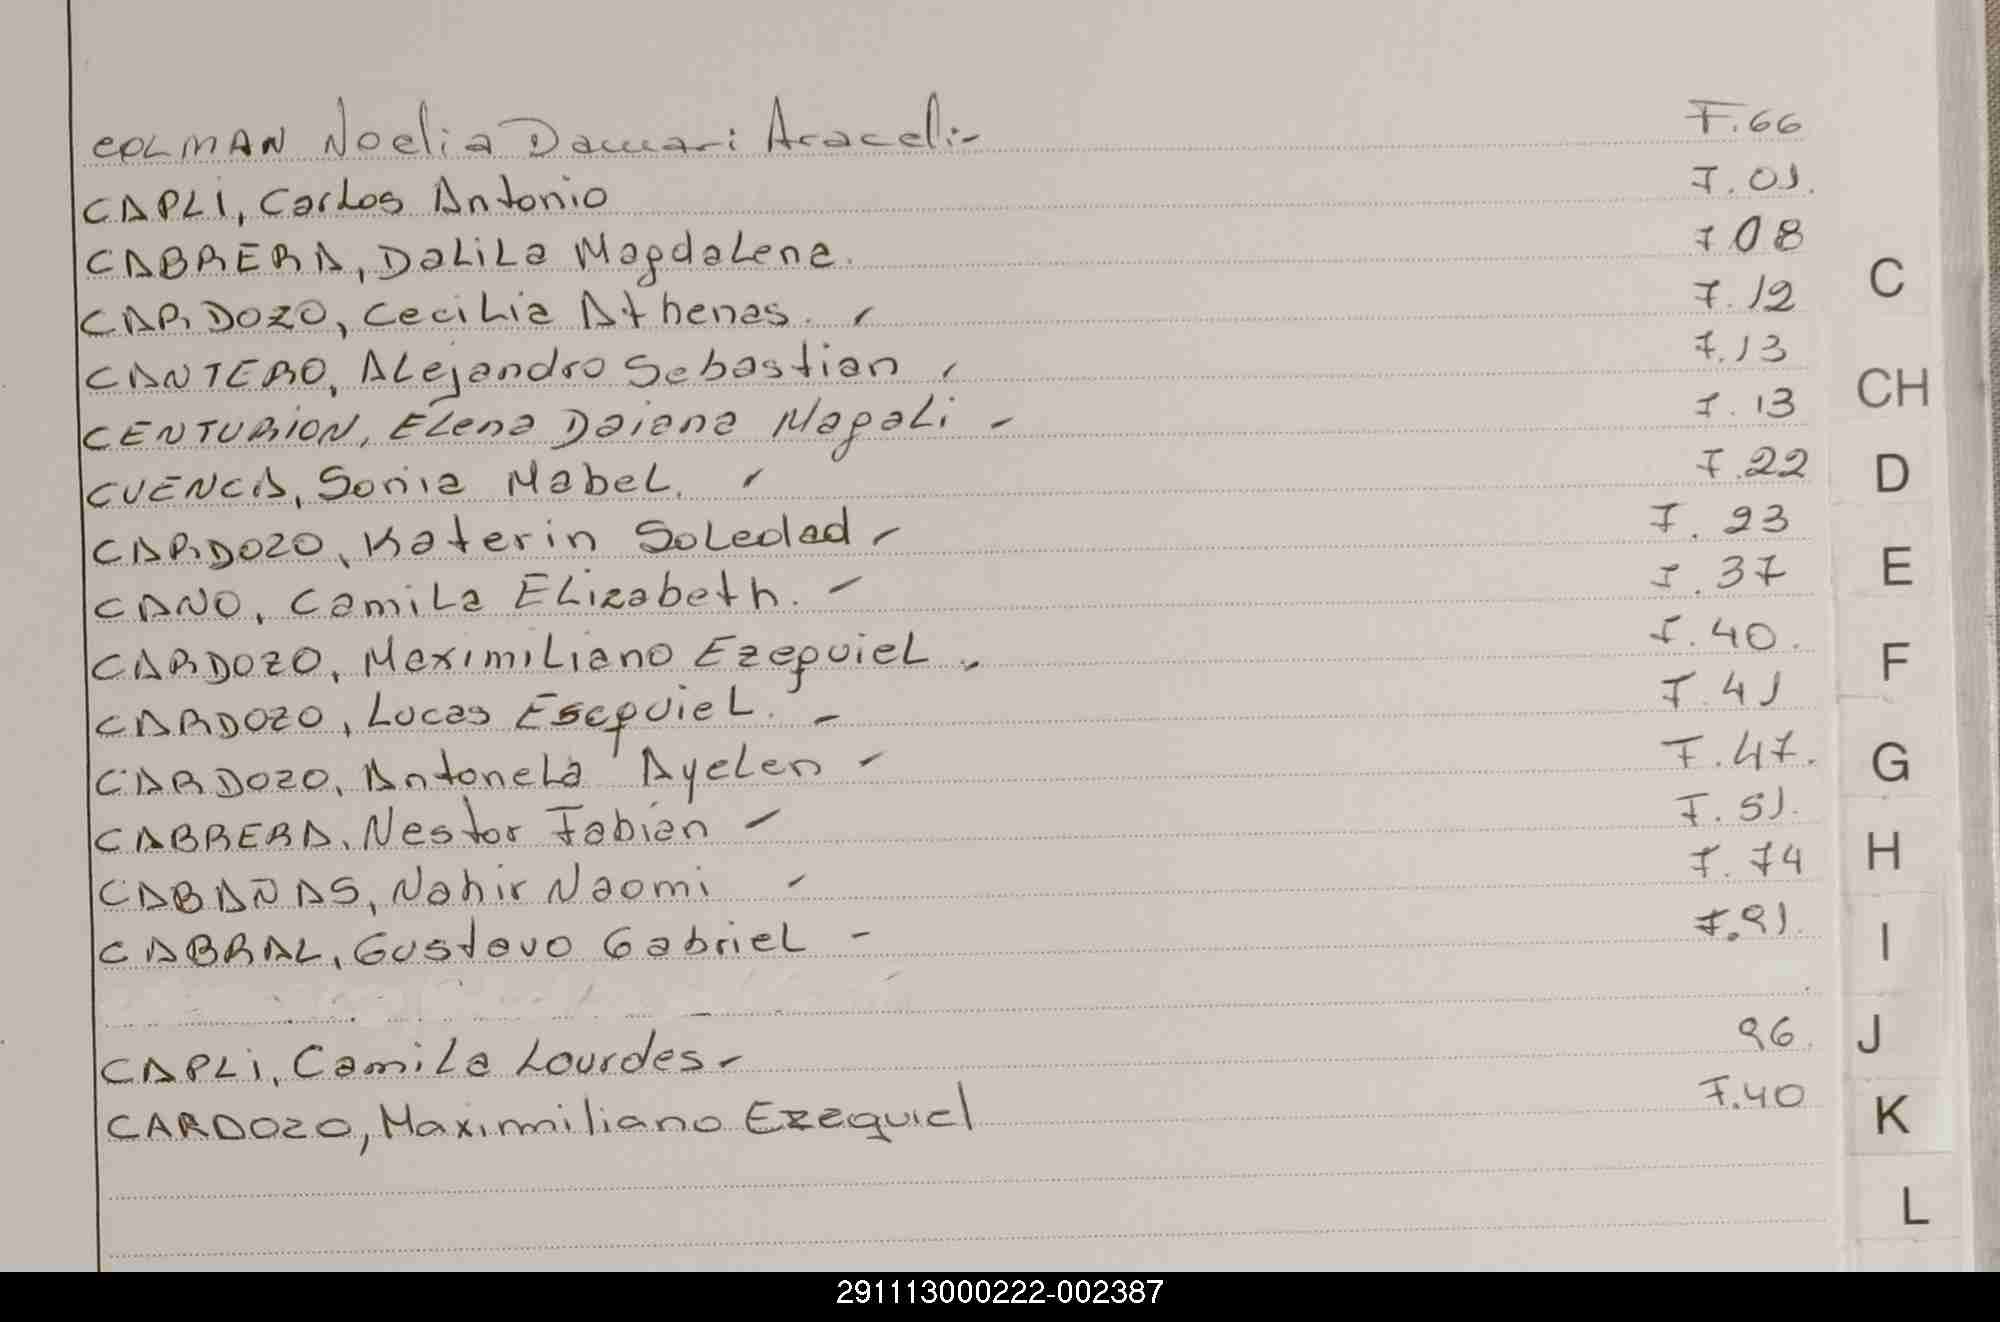 COLMAN Noelia Damari Araceli.- F.66
CAPLI, Carlos Antonio F.01.
CABRERA, Dalila Magdalena. F 08
CARDOZO, Cecilia Athenas. - F.12
CANTERO, Alejandro Sebastian - F.13
CENTURION, Elena Daiana Magali - F.13
CUENCA, Sonia Mabel. - F.22
CARDOZO, Katerin Soledad - F.23
CANO, Camila Elizabeth. - F.37
CARDOZO, Maximiliano Ezequiel - F.40.
CARDOZO, Lucas Esequiel. - F.41
CARDOZO, Antonela Ayelen - F.47.
CABRERA, Nestor Fabián - F.51.
CABAÑAS, Nahir Naomi - F.74
CABRAL, Gustavo Gabriel - F.91.
CAPLI, Camila Lourdes - 96.
CARDOZO, Maximiliano Ezequiel F.40
C
CH
D
E
F
G
H
I
J
K
L
291113000222-002387